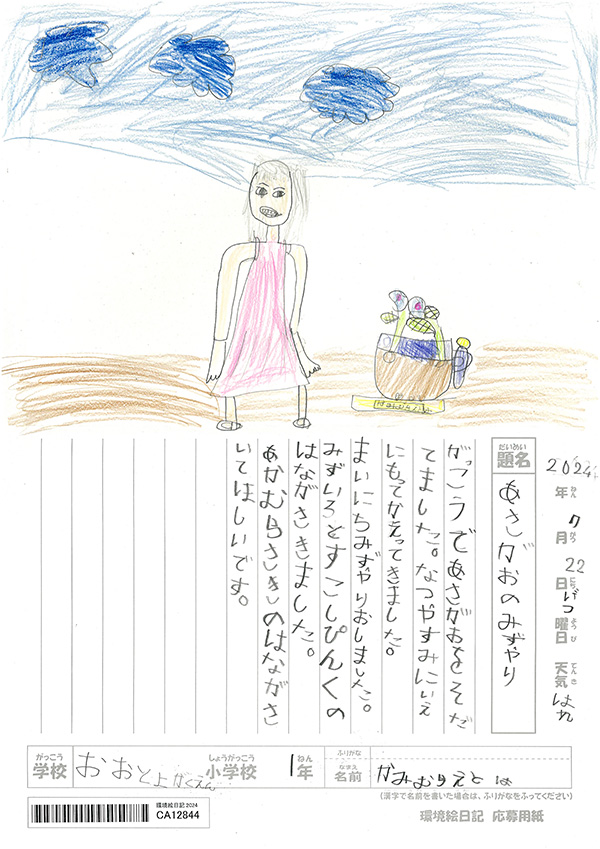 2024年ねん 7月がつ 22日にち げつ曜日ようび 天気てんき はれ
題名だいめい あさがおのみずやり
がっこうであさがおをそだ
てました。なつやすみにいえ
にもってかえってきました。
まいにちみずやりおしました。
みずいろとすこしぴんくの
はながさきました。
あかむらさきのはながさ
いてほしいです。
がっこう しょうがっこう ねん ふりがな
学校 おおとよがくえん 小学校 1年 なまえ 名前 かみむらえと
(漢字で名前を書いた場合は、ふりがなをふってください)
環境絵日記 2024
CA12844
環境絵日記 応募用紙